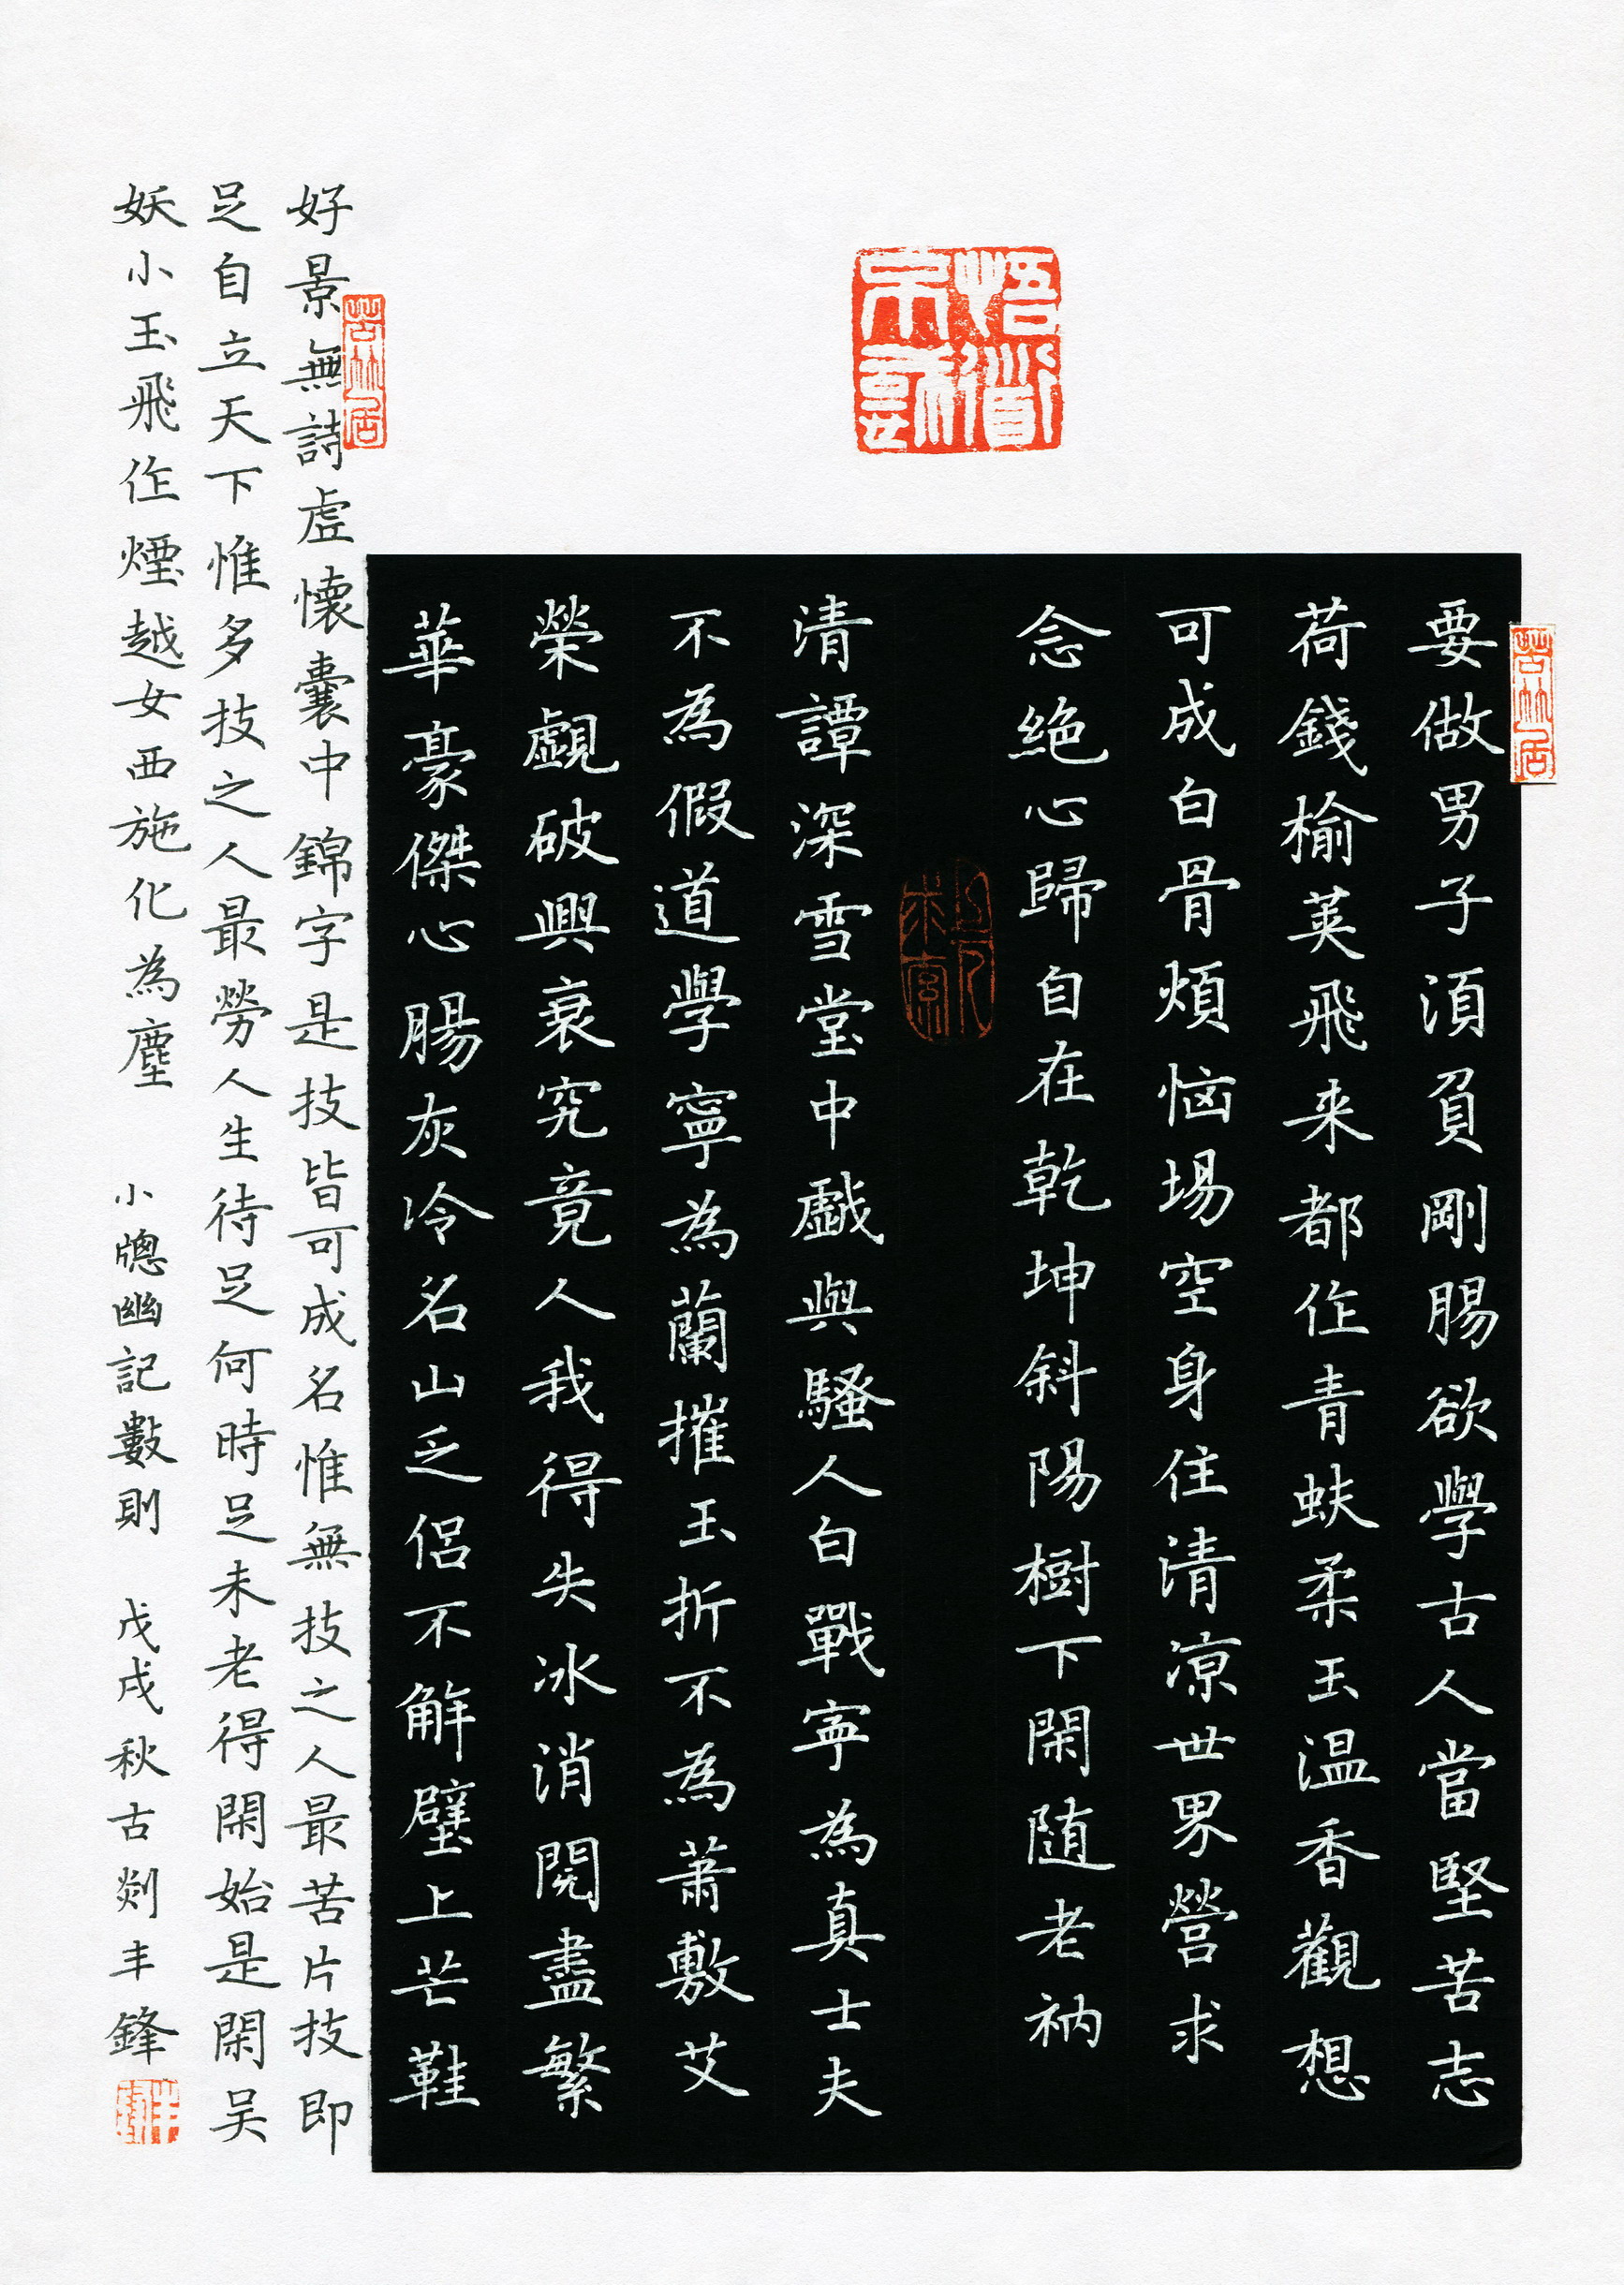 要做男子須負剛腸欲學古人當堅苦志
荷錢榆莢飛来都作青蚨柔玉温香觀想
可成白骨煩惱場空身住清涼世界營求
念絕心歸自在乾坤斜陽樹下閑随老衲
清譚深雪堂中戲與騷人白戰寧為真士夫
不為假道學寧為蘭摧玉折不為蕭敷艾
榮覷破興衰究竟人我得失冰消閱盡繁
華豪傑心腸灰冷名山乏侶不解壁上芒鞋
好景無詩虛懷囊中錦字是技皆可成名惟無技之人最苦片技即
足自立天下惟多技之人最勞人生待足何時足未老得閑始是閑吴
妖小玉飛作煙越女西施化為塵 小牕幽記數則 戊戌秋古剡丰鋒
苦竹居
苦竹居